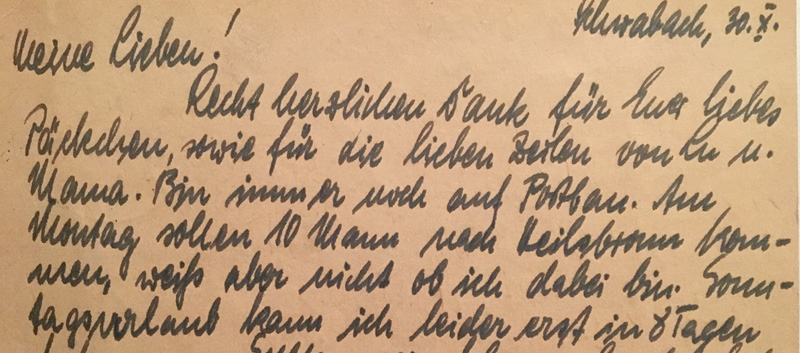 Schwabach, 30.X.
Meine Lieben!
Recht herzlichen Dank für Euer liebes
Päckchen, sowie für die lieben Zeilen von u.
Mama. Bin immer noch auf Postbau. Am
Montag sollen 10 Mann nach Heilsbronn kom-
men, weiß aber nicht ob ich dabei bin. Sonn-
tagsurlaub kann ich leider erst in 8 Tagen